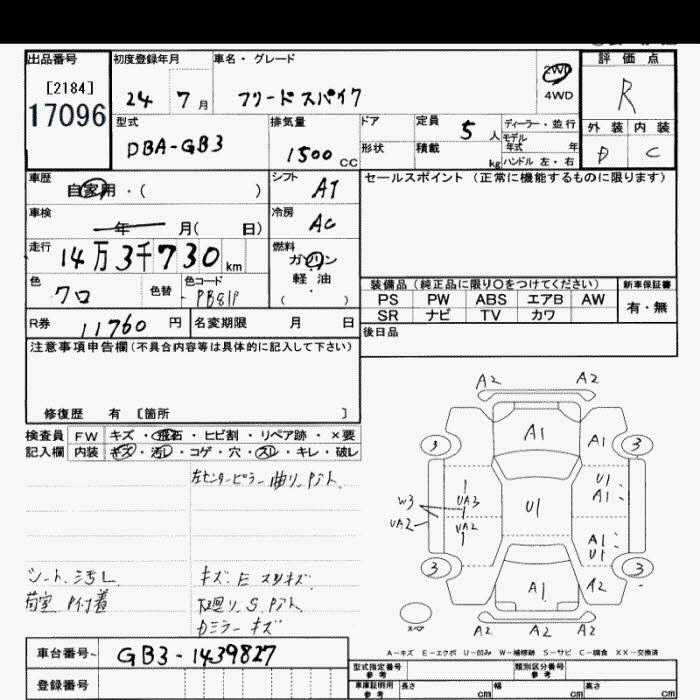 出品番号 初度登録年月 車名・グレード 評価点
[2184] 24 7月 フリードスパイク 2WD 4WD R
17096
型式 排気量 ドア 定員 5人 ディーラー・並行 外装 内装
DBA-GB3 1500cc 形状 積載 kg モデル年式 年 D C
ハンドル 左・右
車歴 自家用・( ) シフト AT セールスポイント(正常に機能するものに限ります)
車検 年 月( 日) 冷房 AC
走行 14万3千730km 燃料 ガソリン
軽油
( )
色 クロ 色替 色コード PB81P
装備品(純正品に限り○をつけてください) 新車保証書
PS PW ABS エアB AW 有・無
SR ナビ TV カワ
R券 11760円 名変期限 月 日 後日品
注意事項申告欄(不具合内容等は具体的に記入して下さい)
修復歴 有 [箇所 ]
検査員 FW キズ・飛石・ヒビ割・リペア跡・×要
記入欄 内装 キズ・汚レ・コゲ・穴・スレ・キレ・破レ
左センターピラー曲リ Pアト
シート汚レ キズ E スリキズ
荷室 P付着 下廻リ S Pアト
Dミラーキズ
A2 A2
A1 A1
3 3
U1
A1
W3 UA3 U1
UA2 UA2 A1
U1
3 3
A1 A2
スペア A2 A2 A2
A-キズ E-エクボ U-凹み W-補修跡 S-サビ C-腐食 XX-交換済
車台番号 GB3-1439827
型式指定番号 参考 類別区分番号 参考
登録番号 車庫証明用 参考 長さ cm 幅 cm 高さ cm